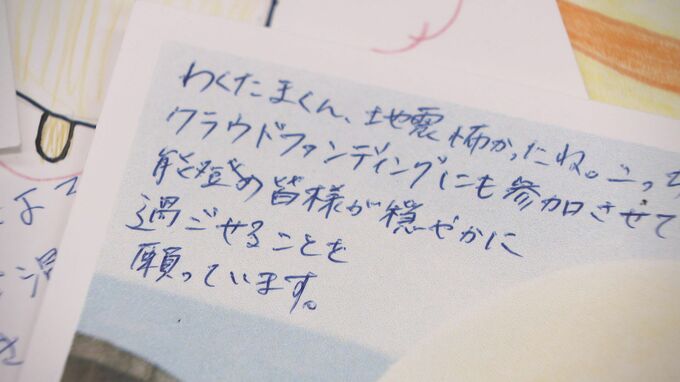 わくたまくん、地震怖かったね。こっち
クラウドファンディングにも参加させて
能登の皆様が穏やかに
過ごせることを
願っています。